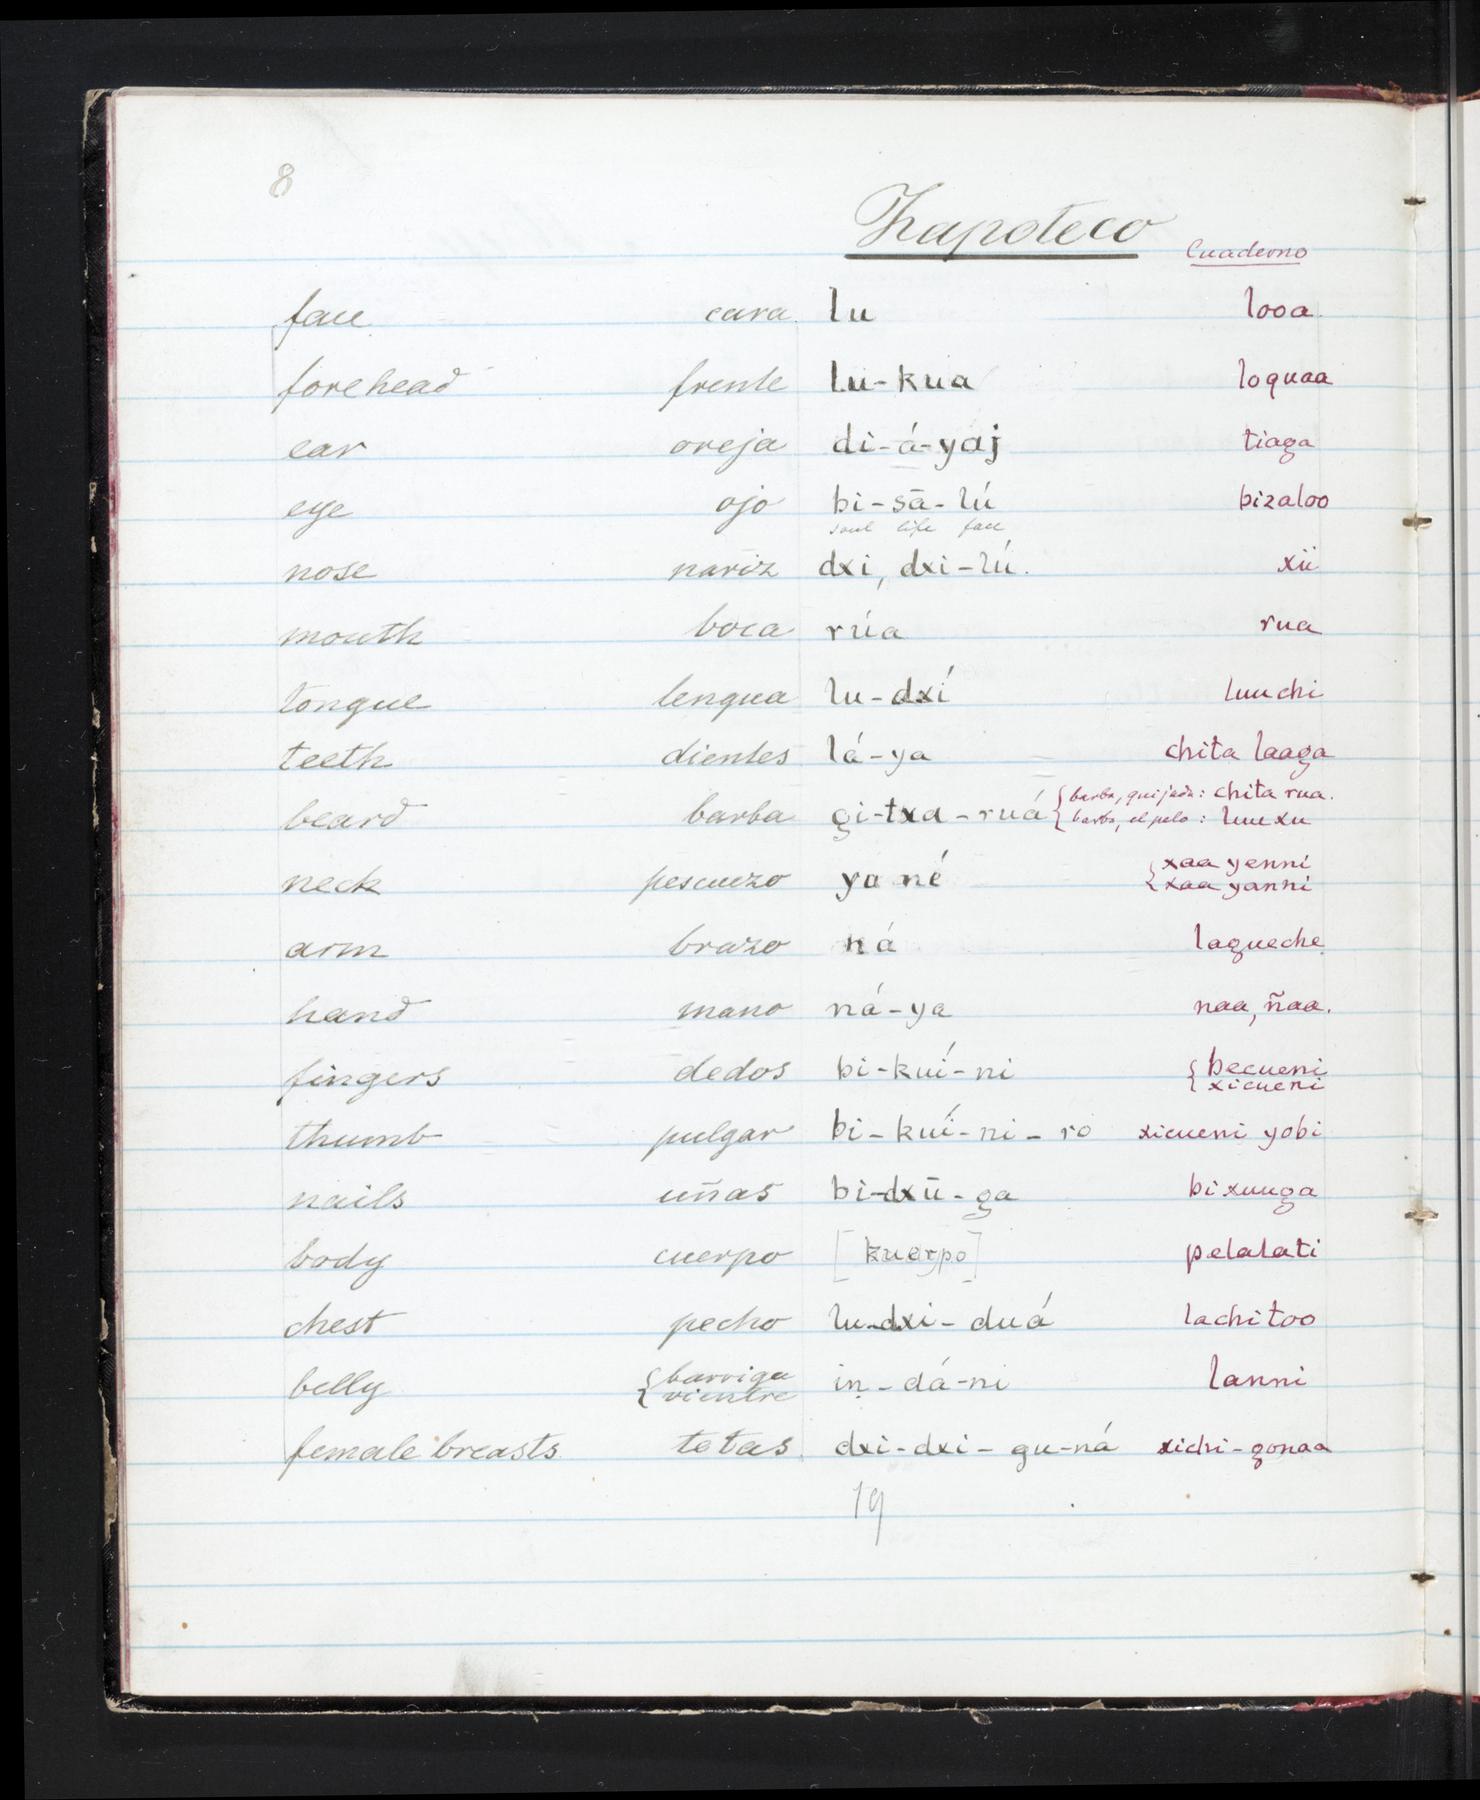 8
Zapoteco
Cuaderno
face cara lu looa
forehead frente lu-kua loquaa
ear oreja di-á-yaj tiaga
eye ojo bi-sā-lú bizaloo
soul life face
nose nariz dxi, dxi-lú. xii
mouth boca rúa rua
tongue lengua lu-dxí luuchi
teeth dientes lá-ya chita laaga
beard barba gi-txa-ruá { barba, quijada: chita rua.
barba, el pelo: luuxu
neck pescuezo yané { xaa yenni
xaa yanni
arm brazo ná lagueche
hand mano ná-ya naa, ñaa.
fingers dedos bi-kuí-ni { becueni
xicueni
thumb pulgar bi-kuí-ni-ro xicueni yobi
nails uñas bi-dxū-ga bixuuga
body cuerpo [kuerpo] pelalati
chest pecho lu-dxi-duá lachitoo
belly { barriga
vientre iṇ-dá-ni lanni
female breasts tetas dxi-dxi-gu-ná xichi-gonaa
19